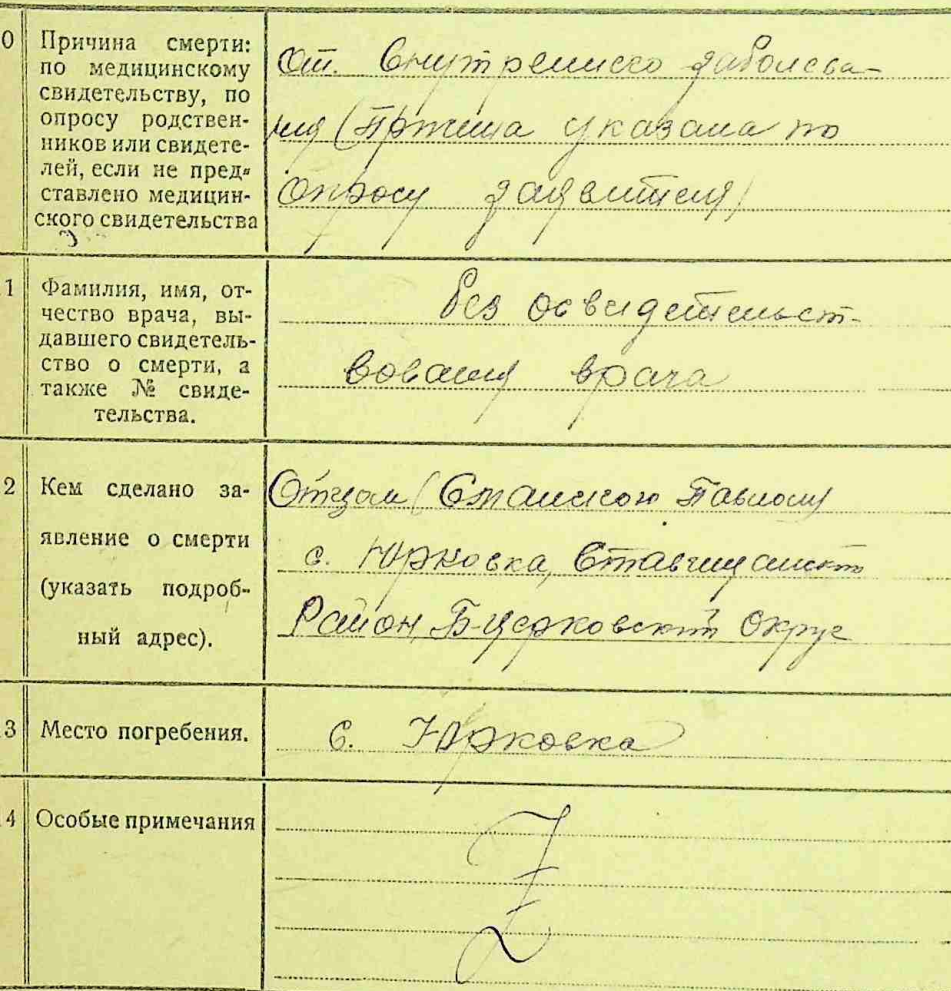 0
Причина смерти:
по медицинскому
свидетельству, по
опросу родствен-
ников или свидете-
лей, если не пред-
ставлено медицин-
ского свидетельства
От. Внутренниго заболева-
ния (Причина указана по
Опросу заявителя)
1
Фамилия, имя, от-
чество врача, вы-
давшего свидетель-
ство о смерти, а
также № свиде-
тельства.
без освидетельст-
вования врача
2
Кем сделано за-
явление о смерти
(указать подроб-
ный адрес).
Отцом Павлом
с. Юрковка,
Район, Б-Церковский Округ
3
Место погребения.
с. Юрковка
4
Особые примечания
Z